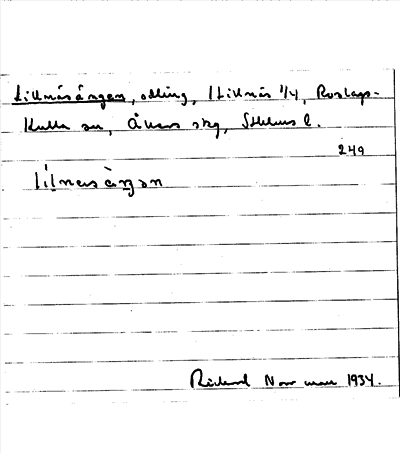 Lillnäsängen, odling, Lillnäs 1/4, Roslags-
Kulla sn, Åkers skg, Sthlms l.
249
lilnäsäŋan
Rickard Norrman 1934.